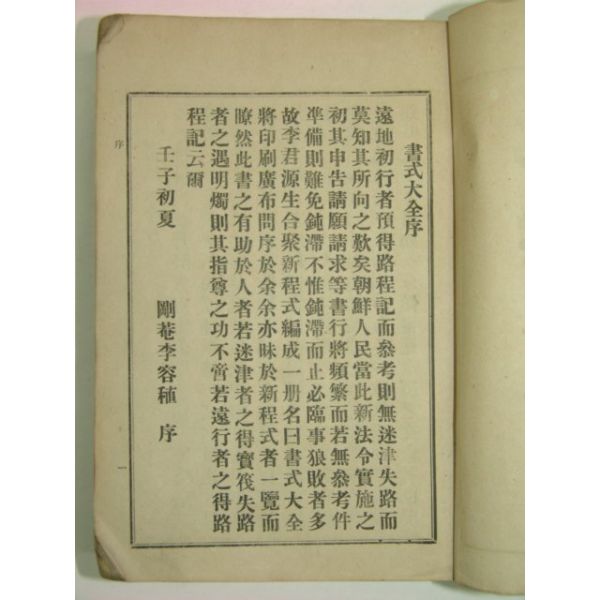 書式大全序
遠地初行者預得路程記而叅考則無迷津失路而
莫知其所向之歎矣朝鮮人民當此新法令實施之
初其申告請願請求等書行將頻繁而若無叅考件
準備則難免鈍滯不惟鈍滯而止必臨事狼敗者多
故李君源生合聚新程式編成一册名曰書式大全
將印刷廣布問序於余余亦昧於新程式者一覽而
瞭然此書之有助於人者若迷津者之得寶筏失路
者之遇明燭則其指尊之功不啻若遠行者之得路
程記云爾
壬子初夏 剛菴李容稙 序
序
一